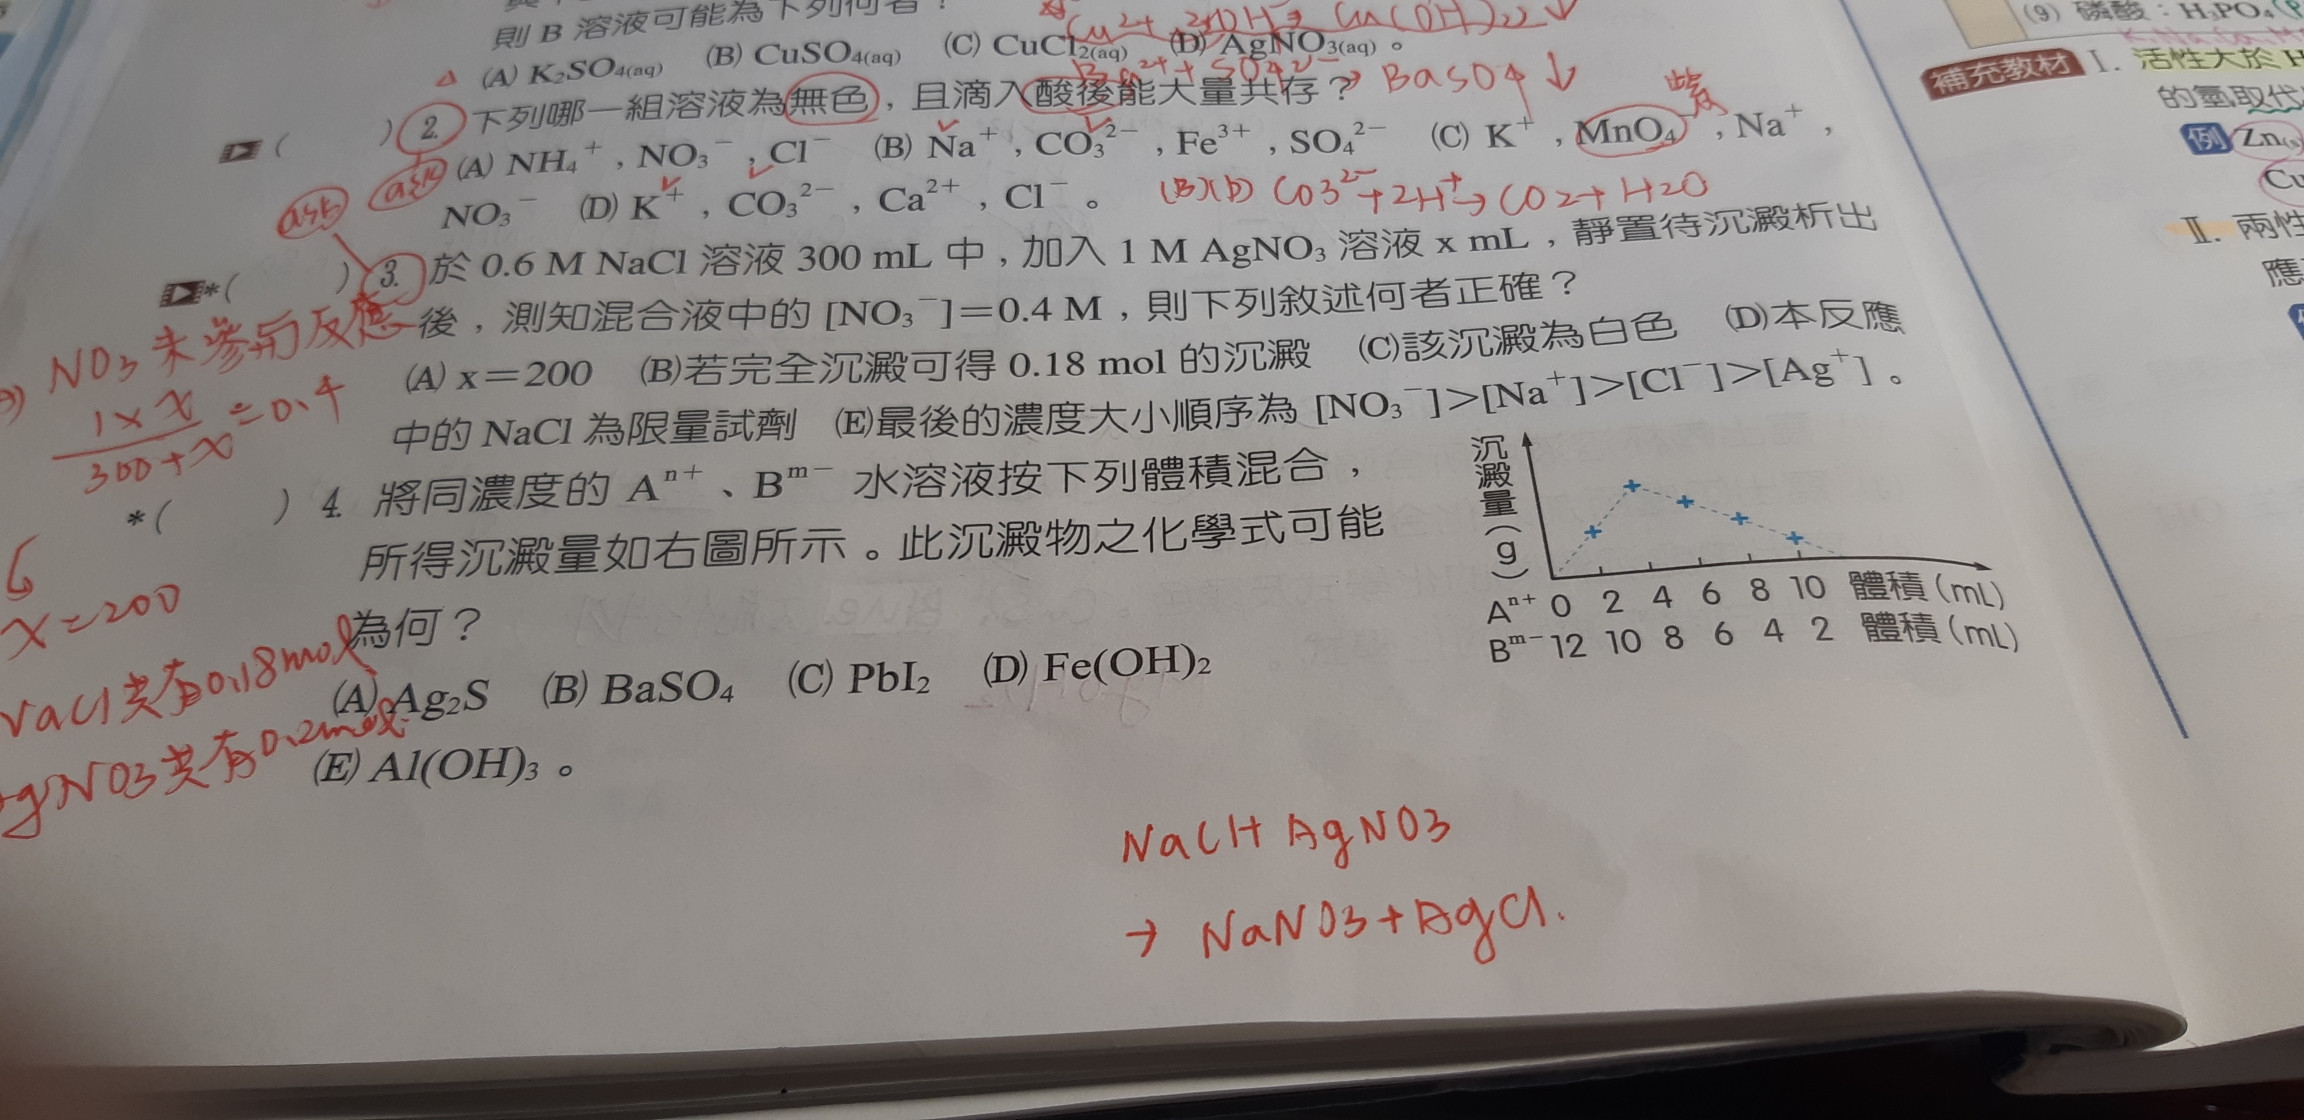 則 B 溶液可能為下列何者？
(A) K₂SO₄(aq) (B) CuSO₄(aq) (C) CuCl₂(aq) (D) AgNO₃(aq)。
Ba²⁺+SO₄²⁻→ BaSO4↓
( ) 2. 下列哪一組溶液為無色，且滴入酸後能大量共存？
紫
(A) NH₄⁺，NO₃⁻，Cl⁻ (B) Na⁺，CO₃²⁻，Fe³⁺，SO₄²⁻ (C) K⁺，MnO₄⁻，Na⁺，
NO₃⁻ (D) K⁺，CO₃²⁻，Ca²⁺，Cl⁻。
ask
ask
(B)(D) CO3²⁻+2H⁺→CO2+H2O
*( ) 3. 於 0.6 M NaCl 溶液 300 mL 中，加入 1 M AgNO₃ 溶液 x mL，靜置待沉澱析出
後，測知混合液中的 [NO₃⁻]＝0.4 M，則下列敘述何者正確？
(A) x＝200 (B)若完全沉澱可得 0.18 mol 的沉澱 (C)該沉澱為白色 (D)本反應
中的 NaCl 為限量試劑 (E)最後的濃度大小順序為 [NO₃⁻]>[Na⁺]>[Cl⁻]>[Ag⁺]。
NO3未參與反應
1×x
300+x
=0.4
x=200
NaCl共有0.18mol
AgNO3共有0.2mol
*( ) 4. 將同濃度的 Aⁿ⁺、Bᵐ⁻ 水溶液按下列體積混合，
所得沉澱量如右圖所示。此沉澱物之化學式可能
為何？
(A) Ag₂S (B) BaSO₄ (C) PbI₂ (D) Fe(OH)₂
(E) Al(OH)₃。
沉澱量(g)
Aⁿ⁺ 0 2 4 6 8 10 體積(mL)
Bᵐ⁻ 12 10 8 6 4 2 體積(mL)
NaCl+AgNO3
→ NaNO3+AgCl.
(9) 磷酸：H₃PO₄
補充教材 I. 活性大於H
的氫取代
例 Zn(s)
Cu
II. 兩性
應